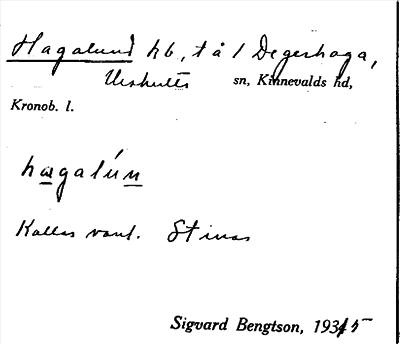 Hagalund hb, t å / Degerhaga,
Urshults sn, Kinnevalds hd,
Kronob. l.
hagalún
Kallas vanl. Stinas
Sigvard Bengtson, 1935